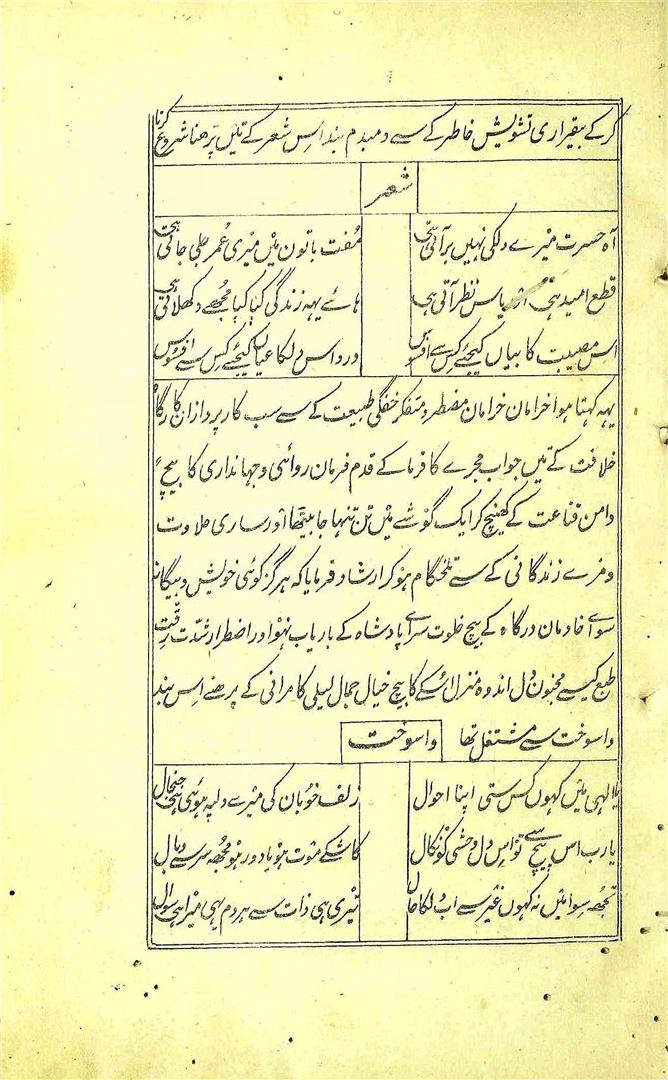 کر کے بیقراری تشویش خاطر کے سے دمبدم بند اس شعر کے تئیں پڑھنا شروع کرنا
شعر
آہ حسرت میرے دلکی نہیں بر آتی ہی مفت باتون میں میری عمر چلی جاتی ہی
قطع امید ہی اور یاس نظر آتی ہی ہائے یہہ زندگی کیا کیا مجھے دکھلاتی ہی
اس مصیبت کا بیاں کیجئے کس سے افسوس درد اس دلکا عیاں کیجئے کس سے افسوس
یہہ کہتا ہوا خرامان خرامان مضطر و متفکر خفگی طبیعت کے سے سب کار پردازان کارگاہ
خلافت کے تئیں جواب مجرے کا فرما کے قدم فرمان روائی و جہانداری کا بیچ
دامن قناعت کے کھینچ کر ایک گوشے میں تن تنہا جا بیٹھا اور ساری حلاوت
و مزے زندگانی کے سے تلخکام ہو کر ارشاد فرمایا کہ ہرگز کوئی خویش و بیگانہ
سوائے خادمان درگاہ کے بیچ خلوت سرائے پادشاہ کے باریاب نہو اور اضطرار شدت رقت
طبع کیسے مجنون دل اندوہ منزل اسکے کا بیچ خیال جمال لیلی کامرانی کے پڑھنے اس بند
واسوخت سے مشتغل تھا واسوخت
یا الہی میں کہوں کس ستی اپنا احوال زلف خوبان کی میرے دلپہ ہوئی ہی جنجال
یا رب اس پیچ سے تو اس دل وحشی کو نکال کاشکے موت ہو یا دور ہو مجھہ سر سے وبال
تجھہ سوا میں نہ کہوں غیر سے اب دلکا حال تیری ہی ذات سے ہر دم یہی میرا ہی سوال